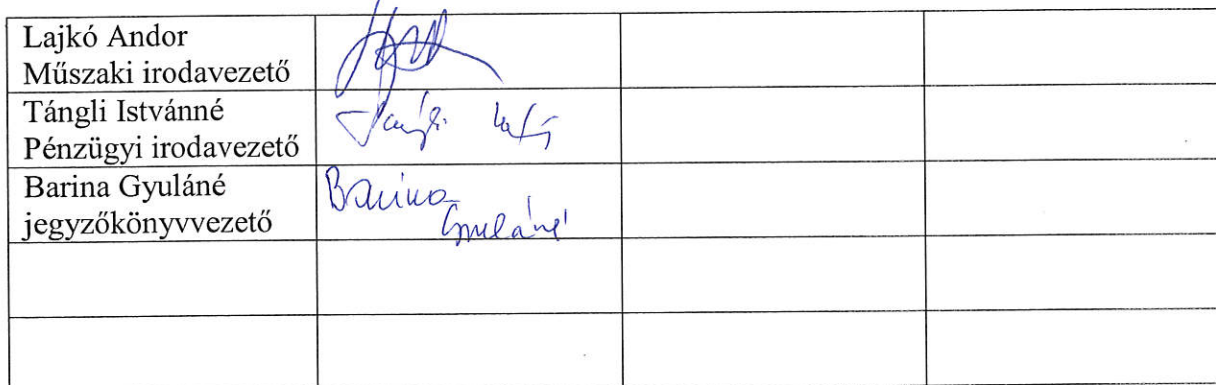 Lajkó Andor
Műszaki irodavezető
Tángli Istvánné
Pénzügyi irodavezető
Barina Gyuláné
jegyzőkönyvvezető
Barina
Gyuláné